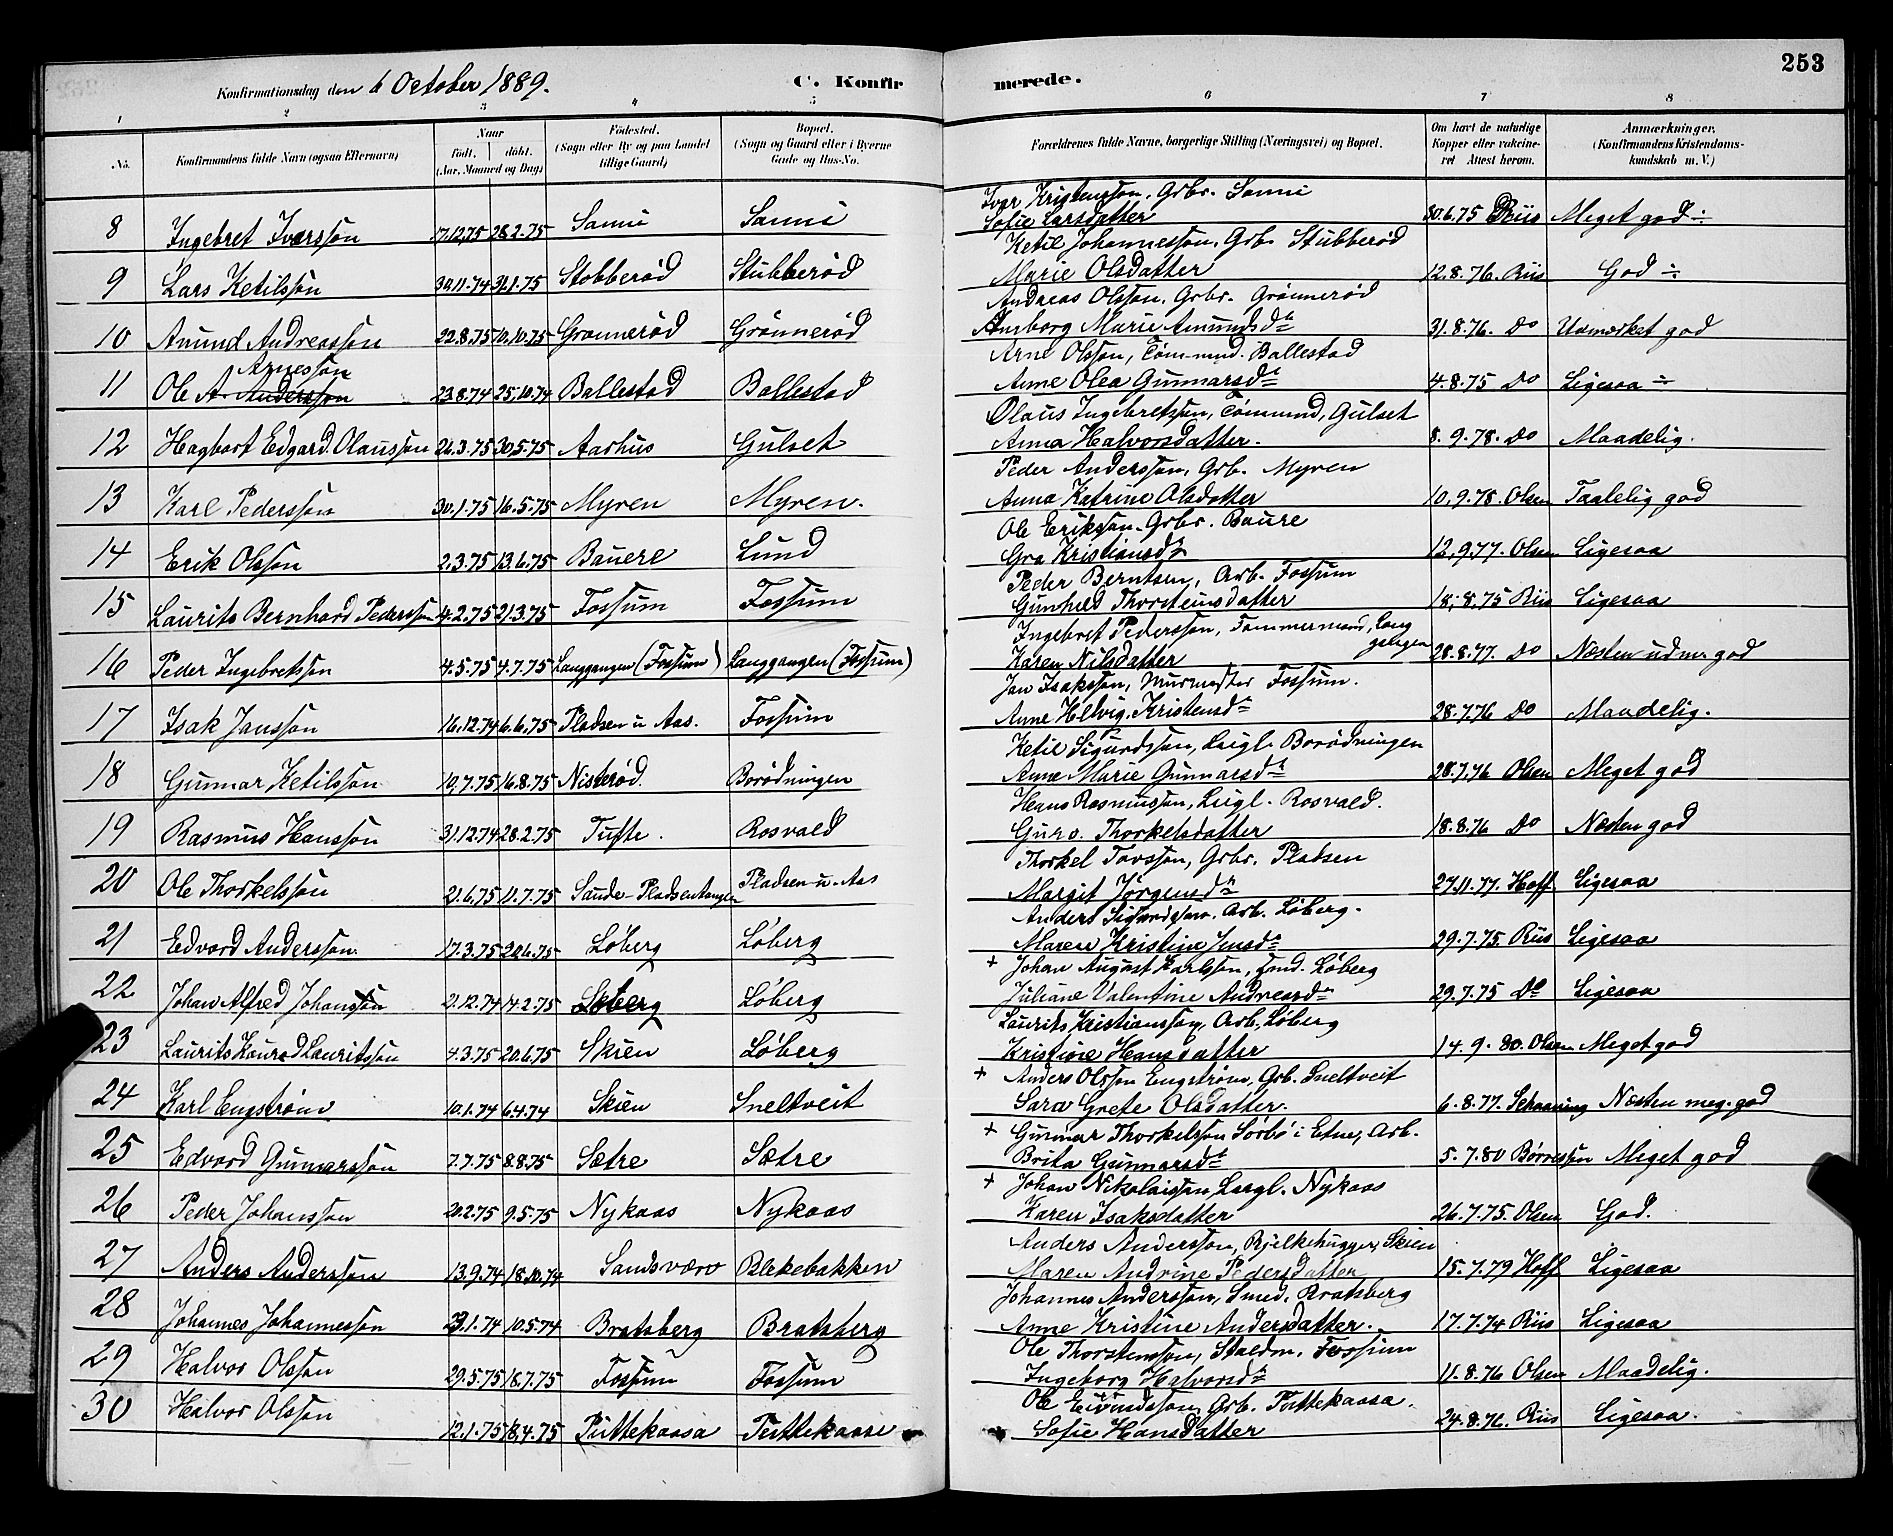 253
Konfirmationsdag den 6 October 1889. C. Konfirmerede.
1 2 3 4 5 6 7 8
No. Konfirmandens fulde Navn (ogsaa Efternavn) Naar Født, døbt. (Aar, Maaned og Dag) Fødested. (Sogn eller By og paa Landet tillige Gaard) Bopæl. (Sogn og Gaard eller i Byerne Gade og Hus-No. Forældrenes fulde Navne, borgerlige Stilling (Næringsvei) og Bopæl. Om havt de naturlige Kopper eller vaccineret Attest herom. Anmærkninger. (Konfirmandens Kristendomskundskab m. V.)
Ivar Kristensson, Grbr. Sanni
8 Ingebret Ivarsson 17.12.75 28.2.75 Sanni Sanni Sofie Larsdatter 30.6.75 Riis Meget god ÷
Ketil Johannesson, Grb. Stubberød
9 Lars Ketilsson 30.11.74 31.1.75 Stobberød Stubberød Marie Olsdatter 12.8.76. Riis God ÷
Andreas Olsson, Grbr. Grønnerød
10 Amund Andreasson 22.8.75 10.10.75 Grønnerød Grønnerød Anborg Marie Amundsdr 31.8.76. Do Udmærket god
Arnesson
Arne Olsson, Tømmmd. Ballestad
11 Ole A. Andersson 23.8.74 25.10.74 Ballestad Ballestad Anne Olea Gunnarsdr 4.8.75 Do Ligesaa ÷
Olaus Ingebretsson, Tømmmd, Gulset
12 Hagbart Edgard Olausson 26.3.75 30.5.75 Aarhus Gulset Anna Halvorsdatter. 8.9.78. Do Maadelig.
Peder Andersson, Grb. Myren
13 Karl Pedersson 30.1.75 16.5.75 Myren Myren. Anna Katrine Olsdatter 10.9.78. Olsen Taalelig god
Ole Eriksson, Grbr. Baure
14 Erik Olsson 2.3.75 13.6.75 Bauere Lund Gro Kristiansdr 12.9.77. Olsen Ligesaa
Peder Berntsen, Arb. Fossum
15 Laurits Bernhard Pedersson 4.2.75 21.3.75 Fossum Fossum Gunhild Thorsteinsdatter 18.8.75 Riis Ligesaa
Ingebret Pedersson, Tømmermand, Lang
gangen
16 Peder Ingebretsson 4.5.75 4.7.75 Langgangen (Fossum) Langgangen (Fossum) Karen Nilsdatter 28.8.77. Do Næsten udm. god
Jan Isaksson, Murmester Fossum.
17 Isak Jansson 16.12.74 6.6.75 Pladsen u Aas. Fossum Anne Helvig Kristensdr 28.7.76 Do Maadelig.
Ketil Sigurdsson, Leigl. Borødningen
18 Gunnar Ketilsson 19.7.75 16.8.75 Nisterød. Borødningen Anne Marie Gunnarsdr 28.7.76 Olsen Meget god
Hans Rasmusson, Leigl. Rosvald.
19 Rasmus Hansson 31.12.74 28.2.75 Tufte. Rosvald Guro Thorkelsdatter 18.8.76 Do Næsten god
Thorkel Tovsson, Grbr. Pladsen
20 Ole Thorkelsson 21.6.75 11.7.75 Saude- Pladsen u. Aas Margit Jørgensdr 27.11.77. Hoff Ligesaa
Anders Sigurdsson, Arb. Løberg.
21 Edvard Andersson. 17.3.75 20.6.75 Løberg Løberg Maren Kristine Jensdr 29.7.75. Riis Ligesaa
+ Johan August Karlsson, Løberg
22 Johan Alfred Johansson 21.12.74 14.2.75 Løberg Løberg Juliane Valentine Andreasdr 29.7.75 Do Ligesaa
Laurits Kristiansson, Arb. Løberg
23 Laurits Konrad Lauritsson 4.3.75 20.6.75 Skien Løberg Kristine Hansdatter 14.9.80. Olsen Meget god
+ Anders Olsson Engstrøm, Grb. Sneltveit
24 Karl Engstrøm 10.1.74 6.4.74 Skien Sneltveit Sara Grete Olsdatter. 6.8.77. Schaaning Næsten meg. god
+ Gunnar Thorkelsson Sørbø i Etne, Arb.
25 Edvard Gunnarsson 7.7.75 8.8.75 Sætre Sætre Brita Gunnarsdr 5.7.80 Børresen Meget god
+ Johan Nikolaisson, Leigl. Nykaas
26 Peder Johansson 20.2.75 9.5.75 Nykaas Nykaas Karen Isaksdatter 26.7.75. Olsen God.
Anders Andersson, Bjelkehugger, Skien
27 Anders Andersson 13.9.74 18.10.74 Sandsværv Blekebakken Maren Andrine Pedersdatter 15.7.79 Hoff Ligesaa
Johannes Andersson, Smed, Bratsberg
28 Johannes Johannesson 23.1.74 10.5.74 Bratsberg Bratsberg Anne Kristine Andersdatter. 17.7.74 Riis Ligesaa
Ole Thorstensson, Staldm. Fossum
29 Halvor Olsson 29.5.75 18.7.75 Fossum Fossum Ingeborg Halvorsdr 11.8.76 Olsen Maadelig.
Ole Eivindsson, Grb. Puttekaasa.
30 Halvor Olsson 12.1.75 18.4.75 Puttekaasa Puttekaase Sofie Hansdatter 24.8.76. Riis Ligesaa.